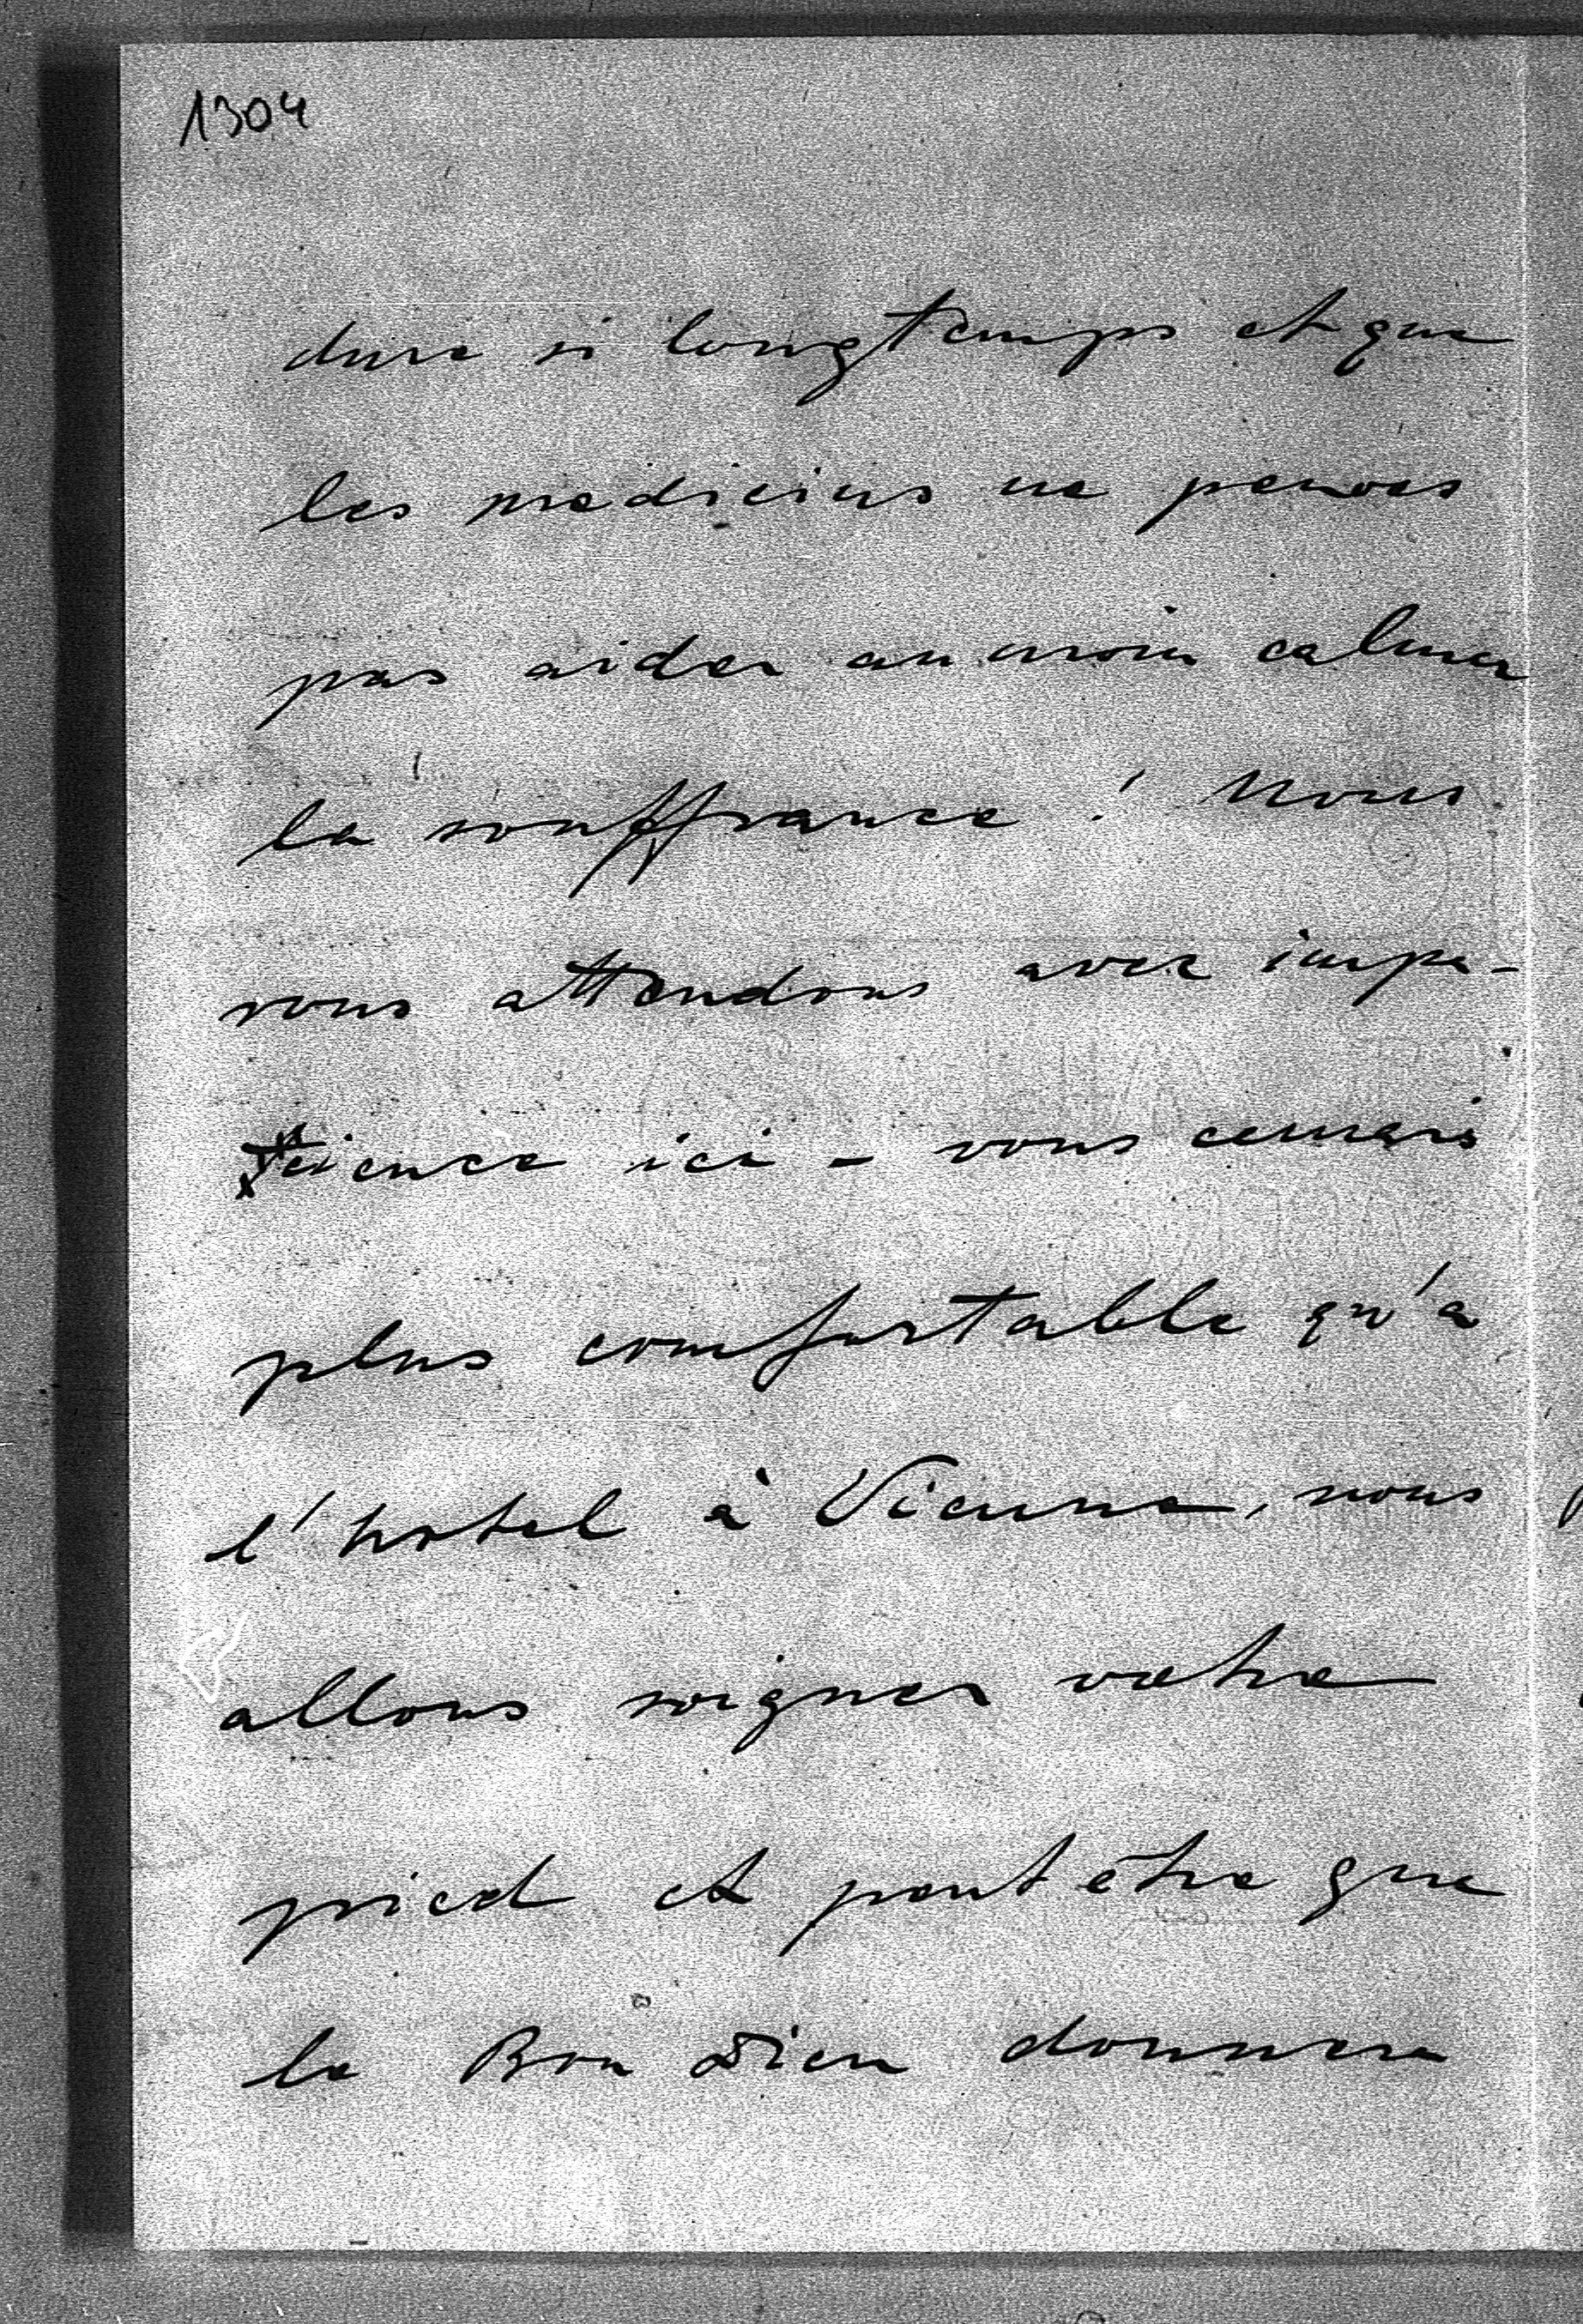 1304
dure si longtemps et que
les medicins ne peuves
pas aider au moin calmer
la souffrance ! Nous
vous attendons avec impa-
tience ici - vous
plus comfortable qu'à
l'hotel à Vienne, nous
allons soigner votre
pied et peut être que
le Bon Dieu donnera